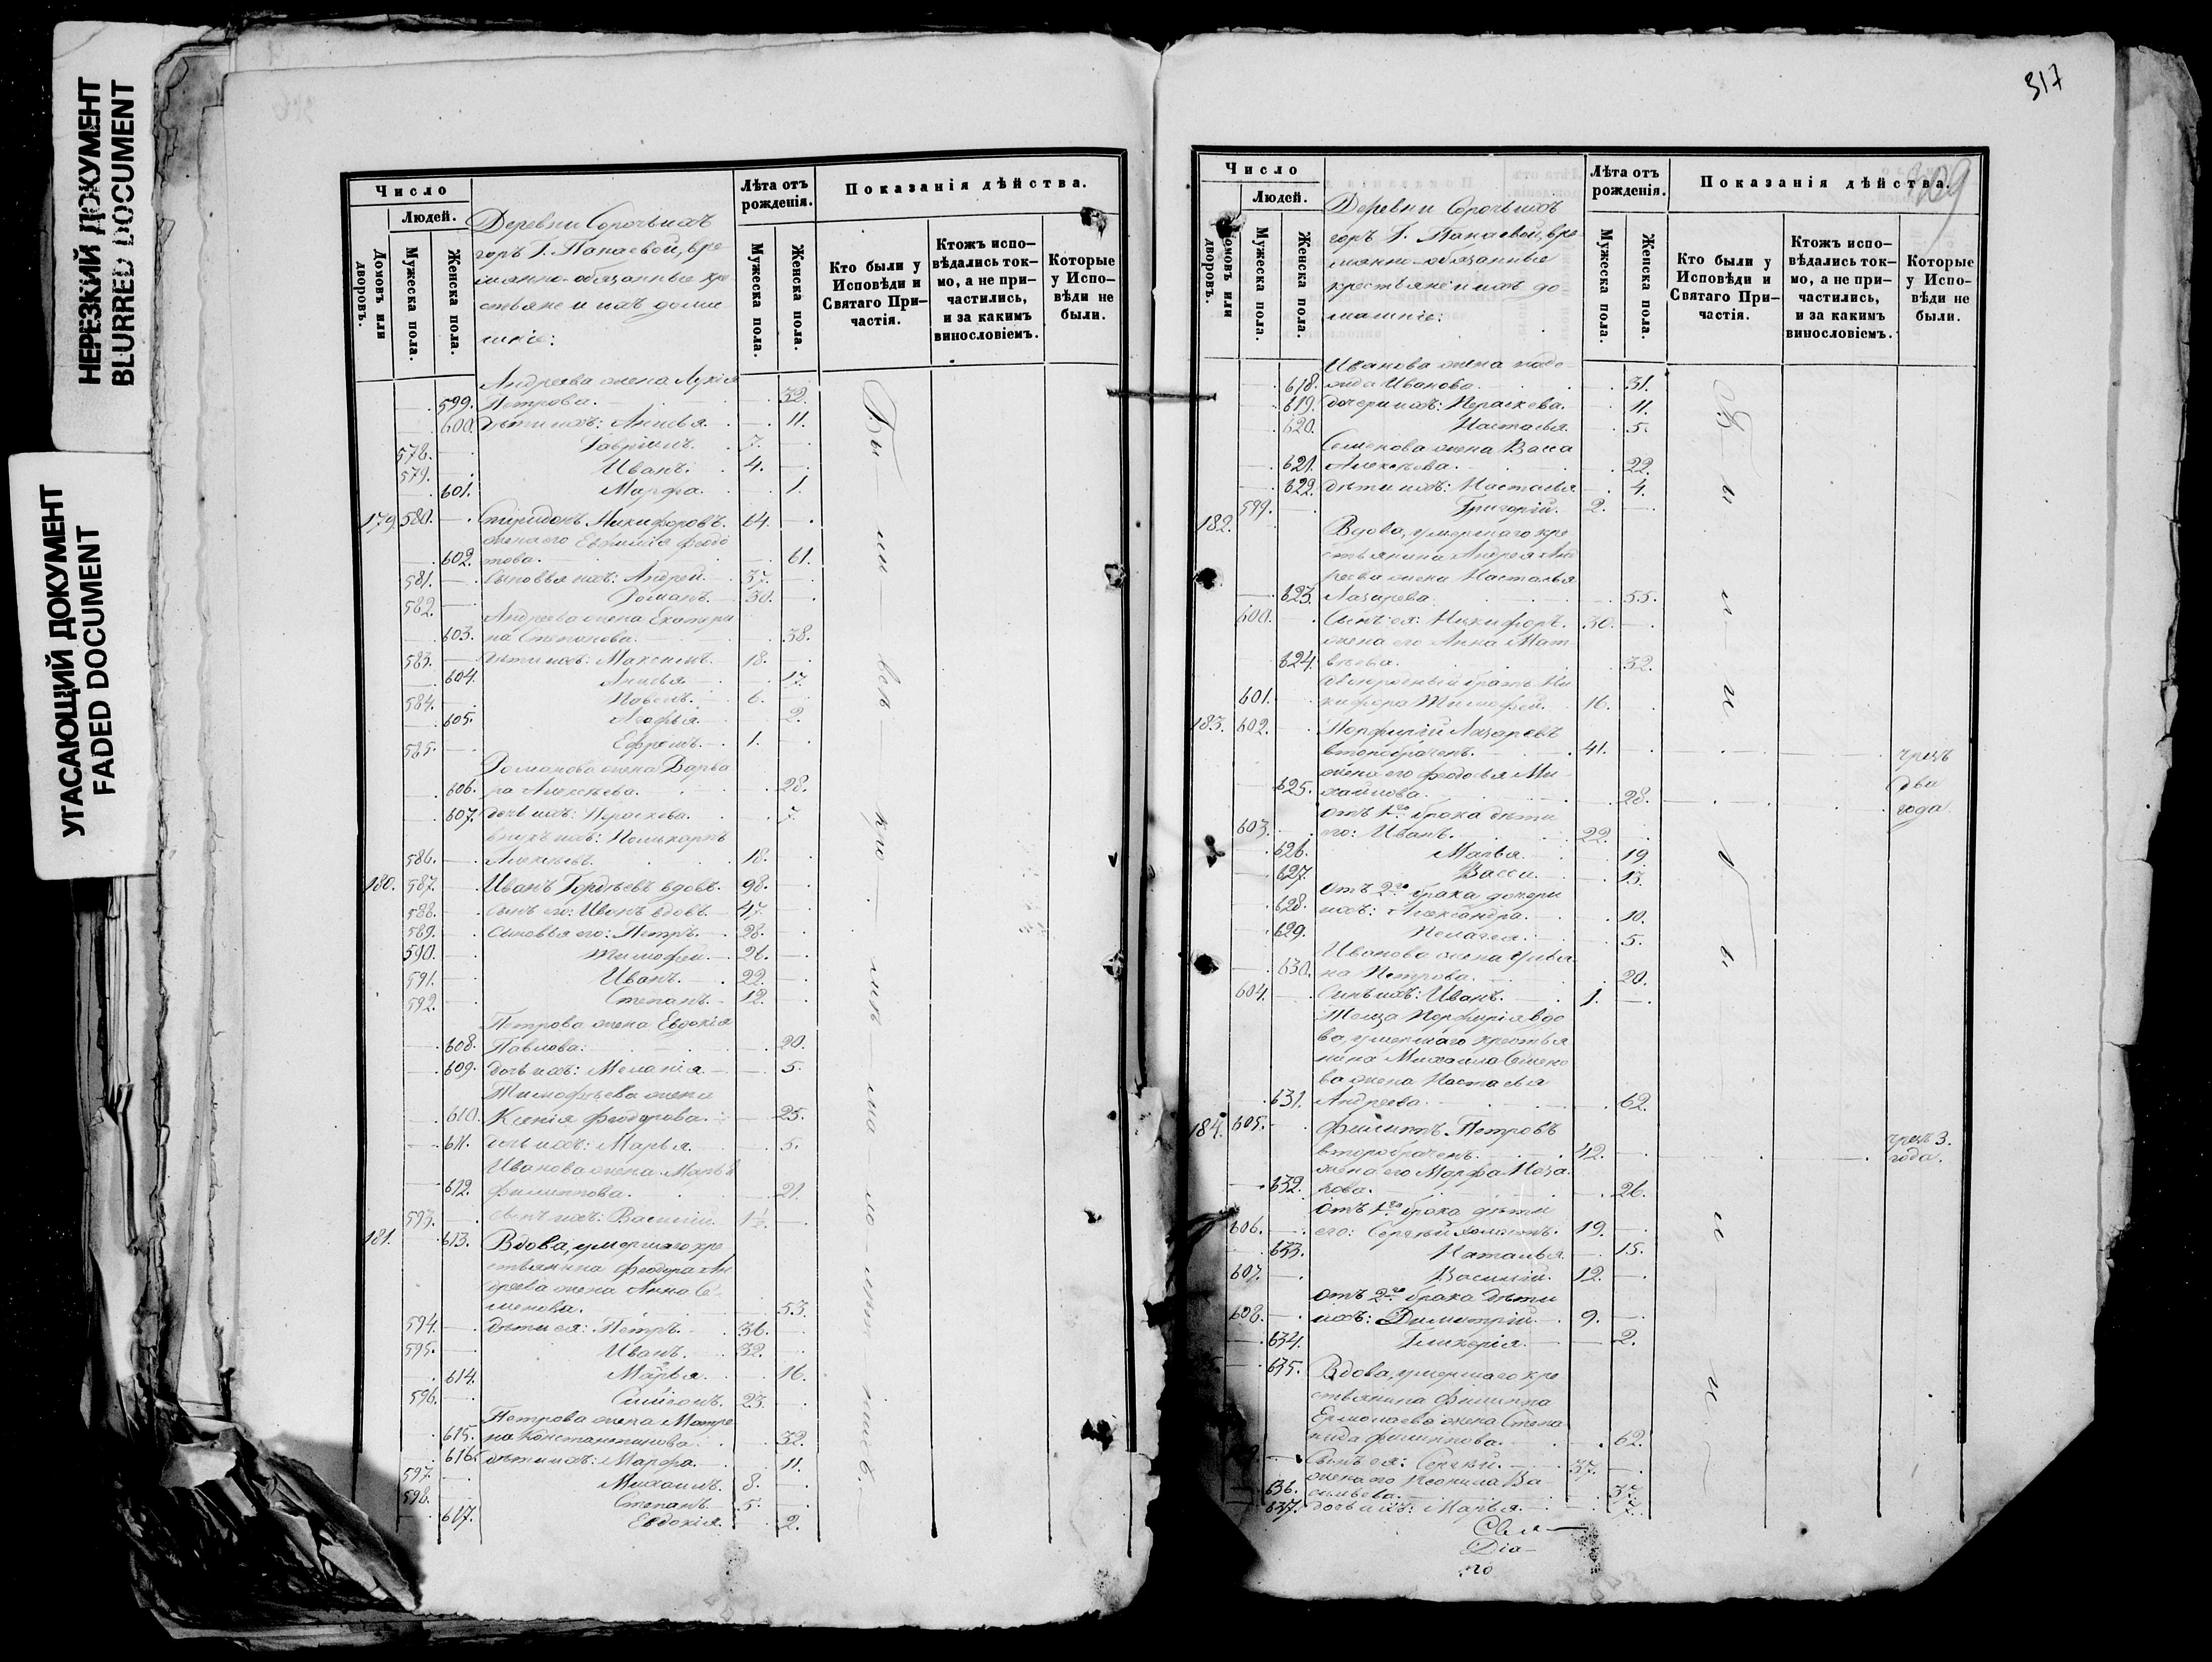 НЕРЕЗКИЙ ДОКУМЕНТ
BLURRED DOCUMENT
УГАСАЮЩИЙ ДОКУМЕНТ
FADED DOCUMENT
Число
Людей.
Домовъ или дворовъ.
Мужеска пола.
Женска пола.
Деревни Сорочьихъ
горъ Г. Панаевой, вре
мянно-обязанные кре
стьяне и ихъ домаш
ніе:
Лѣта отъ рожденія.
Мужеска пола.
Женска пола.
Показанія дѣйства.
Кто были у Исповѣди и Святаго При-частія.
Ктожъ испо-вѣдались ток-мо, а не при-частились, и за какимъ винословіемъ.
Которые у Испо-вѣди не были.
Андреева жена Лукія
599. Петрова. 32.
600. дѣти ихъ: Анисья. 11.
578. Гавріилъ. 7.
579. Иванъ. 4.
601. Марфа. 1.
179. 580. Спиридонъ Никифоровъ. 64.
жена его Евфимія Ѳеодо
602. това. 61.
581. сыновья ихъ: Андрей. 37.
582. Романъ. 30.
Андреева жена Екатери
603. на Степанова. 38.
583. дѣти ихъ: Максимъ. 18.
604. Анисья 17.
584. Павелъ. 6.
605. Агафья. 2.
585. Ефремъ. 1.
Романова жена Варва
606. ра Алексѣева. 28.
607. дочь ихъ: Параскева. 7.
внукъ ихъ: Поликарпъ
586. Алексѣевъ. 18.
180. 587. Иванъ Гордѣевъ вдовъ. 98.
588. сынъ его: Иванъ вдовъ. 47.
589. сыновья его: Петръ. 28.
590. Тимофей. 26.
591. Иванъ. 22.
592. Степанъ. 12.
Петрова жена Евдокія
608. Павлова: 20.
609. дочь ихъ: Меланія. 5.
Тимофѣева жена
610. Ксенія Ѳеодорова. 25.
611. дочь ихъ: Марья. 5.
Иванова жена Марья
612. Филиппова. 21.
593. сынъ ихъ: Василій. 1½.
181. 613. Вдова, умершаго кре
стьянина Ѳеодора Ан
дреева жена Анна Се
менова. 53.
594. дѣти ея: Петръ. 36.
595. Иванъ. 32.
614. Марья. 16.
596. Симеонъ. 23.
Петрова жена Матре
615. на Константинова. 32.
616. дѣти ихъ: Марфа. 11.
597. Михаилъ. 8.
598. Степанъ. 5.
617. Евдокія. 2.
317
Число
Людей.
Домовъ или дворовъ.
Мужеска пола.
Женска пола.
Деревни Сорочьихъ
горъ Г. Панаевой, вре
мянно-обязанные
крестьяне и ихъ до
машніе:
Лѣта отъ рожденія.
Мужеска пола.
Женска пола.
Показанія дѣйства.
Кто были у Исповѣди и Святаго При-частія.
Ктожъ испо-вѣдались ток-мо, а не при-частились, и за какимъ винословіемъ.
Которые у Испо-вѣди не были.
Иванова жена Наде
618. жда Иванова. 31.
619. дочери ихъ: Параскева. 11.
620. Настасья. 5.
Семенова жена Васса
621. Алексѣева. 22.
622. дѣти ихъ: Настасья 4.
599. Григорій. 2.
182. Вдова, умершаго кре
стьянина Андрея Ан
реева жена Настасья
623. Лазарева. 55.
600. Сынъ ея: Никифоръ. 30.
жена его Анна Мат
624. вѣева. 32.
братъ Ни
601. кифора Тимофей. 16.
183. 602. Порфирій Лазаревъ
второбраченъ. 41. чрезъ
жена его Ѳедосья Ми два
625. хайлова. 28. года
отъ 1го брака дѣти
603. его: Иванъ. 22.
626. Марья. 19
627. Васса. 13.
отъ 2го брака дочери
628. ихъ: Александра. 10.
629. Пелагея. 5.
Иванова жена Улья
630. на Петрова. 20.
604. сынъ ихъ: Иванъ. 1.
Теща Порфирія вдо
ва, умершаго крестья
нина Михаила Семено
ва жена Настасья
631. Андреева. 62.
184. 605. Филиппъ Петровъ
второбраченъ. 42. чрезъ 3. года.
жена его Марфа Наза
632. рова. 26.
отъ 1го брака дѣти
606. его: Сергѣй холостъ. 19.
633. Наталья. 15.
607. Василій. 12.
отъ 2го брака дѣти
608. ихъ: Димитрій. 9.
634. Гликерія. 2.
635. Вдова, умершаго кре
стьянина Филиппа
Ермолаева жена Степа
нида Филиппова. 62.
Сынъ ея: Сергѣй. 37.
жена его Неонила Ва
636. сильева. 37.
637. дочь ихъ: Марья. 7.
Свя-
Діа-